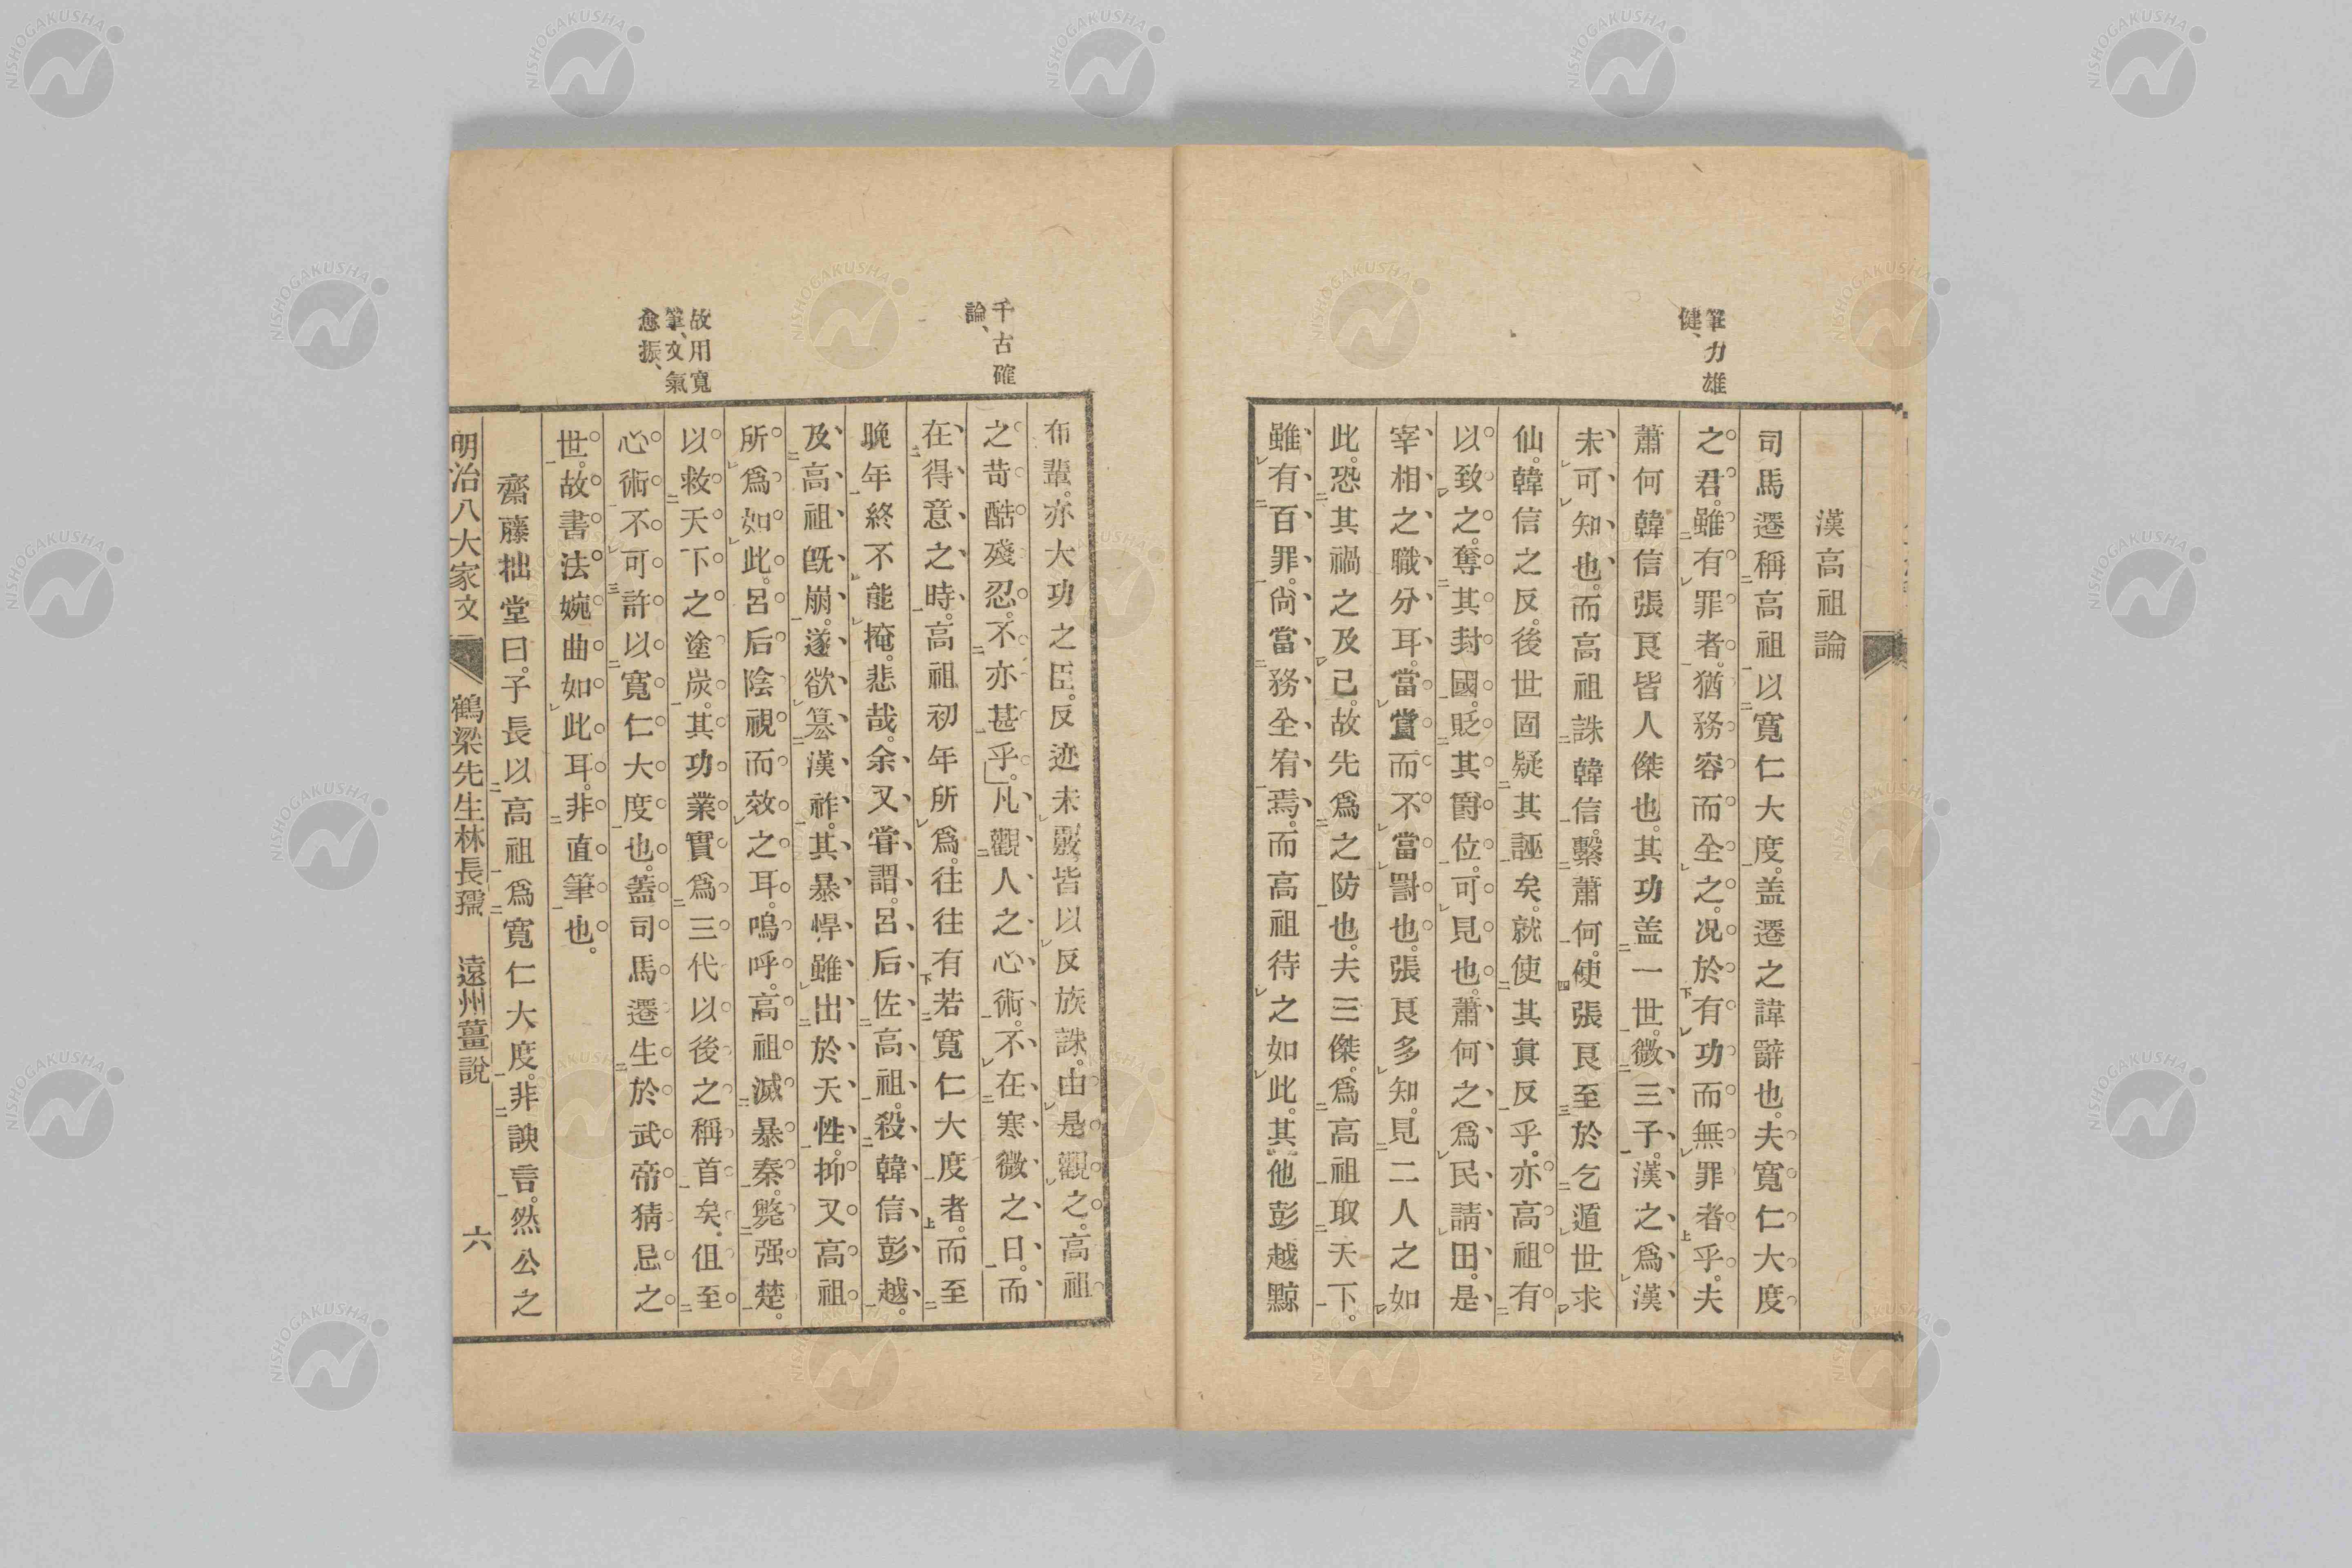 漢高祖論
司馬遷稱高祖以寬仁大度。盖遷之諱辭也。夫寬仁大度
之君。雖有罪者。猶務容而全之。况於有功而無罪者乎。夫
蕭何韓信張良皆人傑也。其功盖一世。微三子。漢之爲漢
未可知也。而高祖誅韓信。繫蕭何。使張良至於乞遁世求
仙。韓信之反。後世固疑其誣矣。就使其眞反乎。亦高祖有
以致之。奪其封國。貶其爵位。可見也。蕭何之爲民請田。是
宰相之職分耳。當賞而不當罰也。張良多知。見二人之如
此。恐其禍之及己。故先爲之防也。夫三傑。爲高祖取天下。
雖有百罪。尙當務全宥焉。而高祖待之如此。其他彭越黥
筆力雄
健、
布輩。亦大功之臣。反迹未覈。皆以反族誅。由是觀之。高祖
之苛酷殘忍。不亦甚乎。凡觀人之心術。不在寒微之日。而
在得意之時。高祖初年所爲。往往有若寬仁大度者。而至
晚年終不能掩。悲哉。余又甞謂。呂后佐高祖。殺韓信彭越。
及高祖旣崩。遂欲簒漢祚。其暴悍雖出於天性。抑又高祖
所爲如此。呂后陰視而效之耳。嗚呼。高祖滅暴秦。斃强楚。
以救天下之塗炭。其功業實爲三代以後之稱首矣。伹至
心術不可許以寬仁大度也。蓋司馬遷生於武帝猜忌之
世。故書法婉曲如此耳。非直筆也。
齋藤拙堂曰。子長以高祖爲寬仁大度。非諛言。然公之
千古確
論、
故用寬
筆、文氣
愈振、
明治八大家文 鶴梁先生林長孺 遠州薑說 六
NISHOGAKUSHA